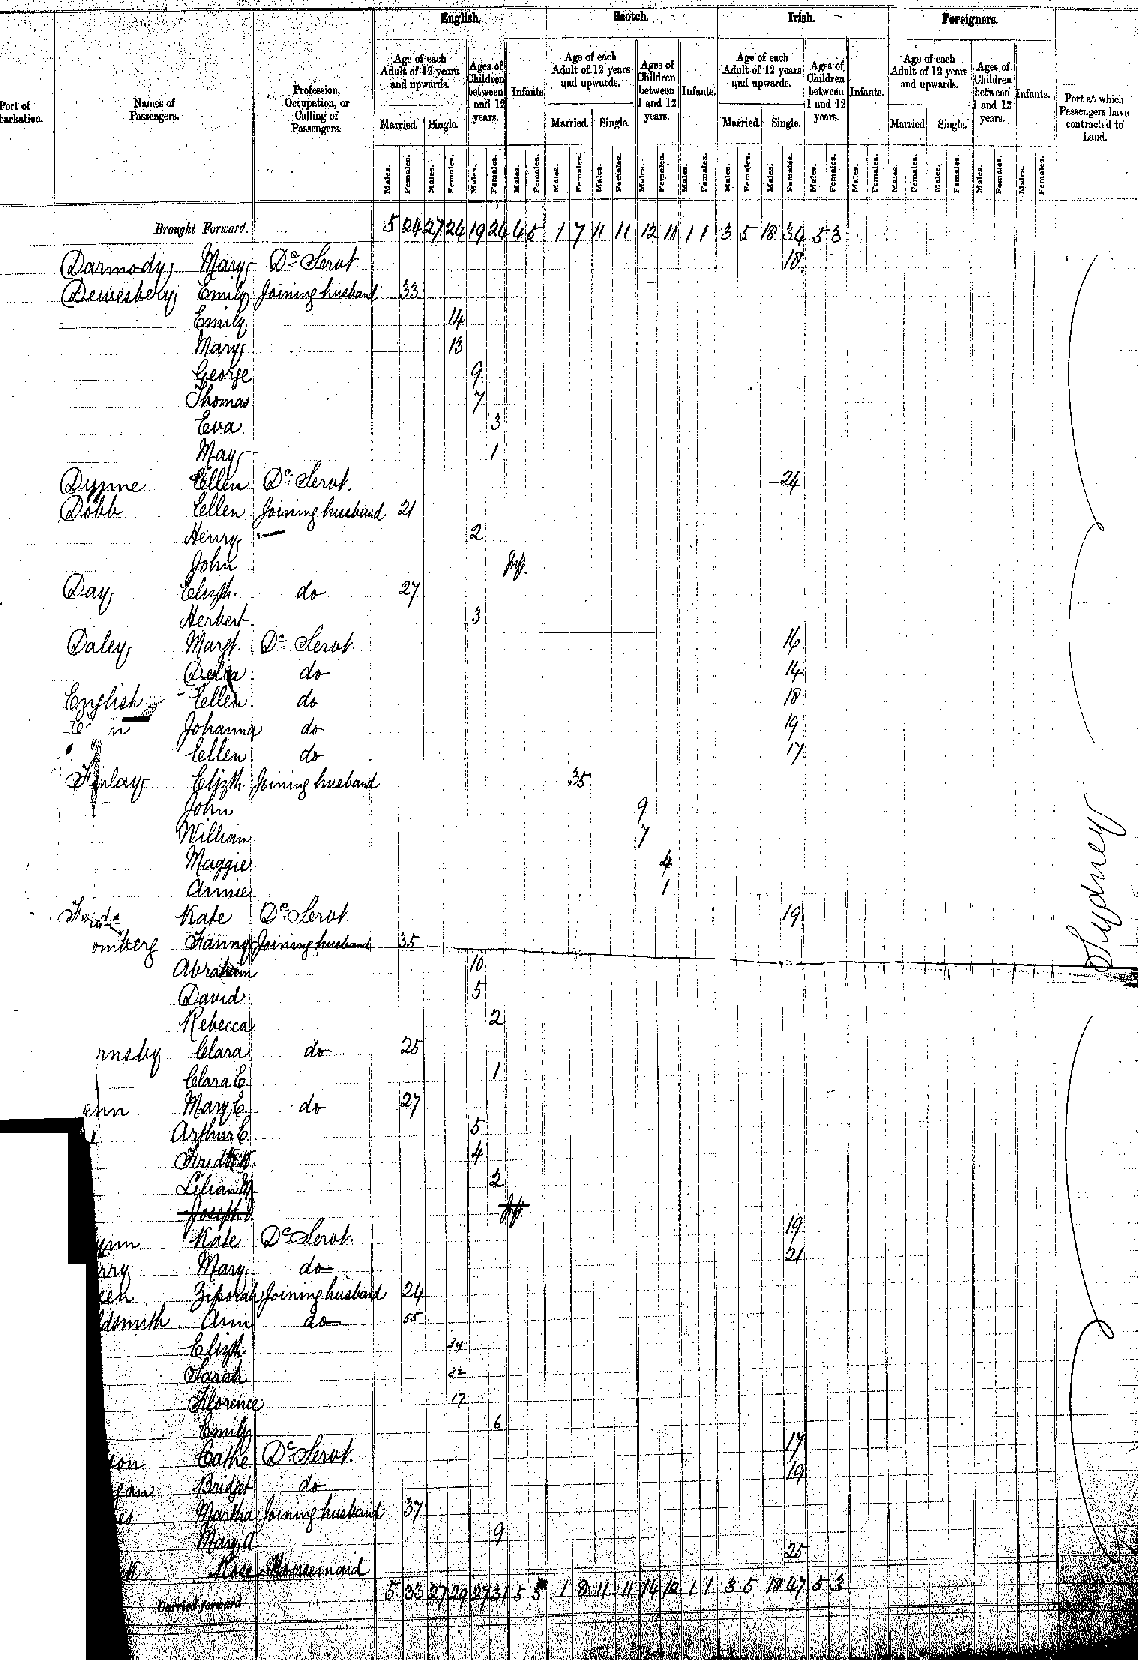 English. Scotch. Irish. Foreigners.
Port of Embarkation. Names of Passengers. Profession, Occupation, or Calling of Passengers. Age of each Adult of 12 years and upwards. Ages of Children between 1 and 12 years. Infants. Age of each Adult of 12 years and upwards. Ages of Children between 1 and 12 years. Infants. Age of each Adult of 12 years and upwards. Ages of Children between 1 and 12 years. Infants. Age of each Adult of 12 years and upwards. Ages of Children between 1 and 12 years. Infants. Port at which Passengers have contracted to Land.
Married. Single. Married. Single. Married. Single. Married. Single.
Males. Females. Males. Females. Males. Females. Males. Females. Males. Females. Males. Females. Males. Females. Males. Females. Males. Females. Males. Females. Males. Females. Males. Females. Males. Females. Males. Females. Males. Females. Males. Females.
Brought Forward. 5 24 27 26 19 26 4 5 1 7 11 11 12 11 1 1 3 5 18 34 5 3
Darmody Mary Dc Servt 18
Dewesbery Emily Joining husband 33
Emily 14
Mary 13
George 9
Thomas 7
Eva 3
May 1
Dynne Ellen Dc Servt. 24
Dobb Ellen Joining husband 21
Henry 2
John Inf.
Day Elizth. do 27
Herbert 3
Daley Margt. Dc Servt 16
Delia do 14
English Ellen do 18
Johanna do 19
Ellen do 17
Finlay Elizth Joining husband 35
John 9
William 7
Maggie 4
Annie 1
Kate Dc Servt 19
omberg Fanny Joining husband 35
Abraham 10
David 5
Rebecca 2
rnsby Clara do 25
Clara E 1
enn Mary E do 27
Arthur E 5
Fredk 4
Lilian M 2
Joseph Inf
ynn Kate Dc Servt. 19
rry Mary do 21
een Ziporah Joining husband 24
ldsmith Ann do 55
Elizth 24
Sarah 22
Florence 17
Emily 6
Cathe Dc Servt. 17
gan Bridget do 19
es Martha Joining husband 37
Mary A 9
k Rose Housemaid 25
Carried forward 5 33 27 29 27 31 5 5 1 8 11 11 14 12 1 1 3 5 18 47 5 3
Sydney